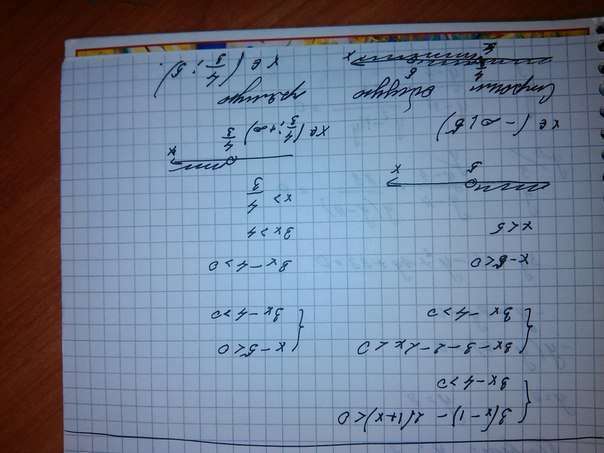 { 3(x-1)-2(1+x)<0
3x-4>0
{ 3x-3-2-2x<0
3x-4>0
{ x-5<0
3x-4>0
x-5<0
x<5
5
x
x∈(-∞;5)
3x-4>0
3x>4
x> 4/3
x
4/3
x∈(4/3;+∞)
Строим общую прямую
4/3
5
x
x∈(4/3;5).